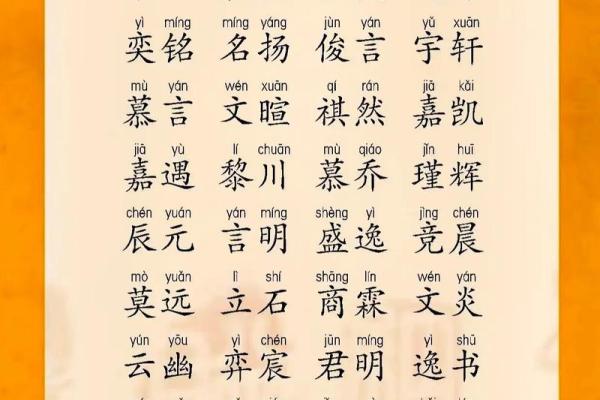 yì míng míng yáng jùn yán yǔ xuān
奕铭 名扬 俊言 宇轩
mù yán wén xuān qí rán jiā kǎi
慕言 文暄 祺然 嘉凯
jiā yù lí chuān mù qiáo jǐn huī
嘉遇 黎川 慕乔 瑾辉
chén yuán yán míng shèng yì jìng chén
辰元 言明 盛逸 竞晨
mò yuǎn lì shí shāng lín wén yán
莫远 立石 商霖 文炎
yún yōu yì chén jūn míng yì shū
云幽 弈宸 君明 逸书